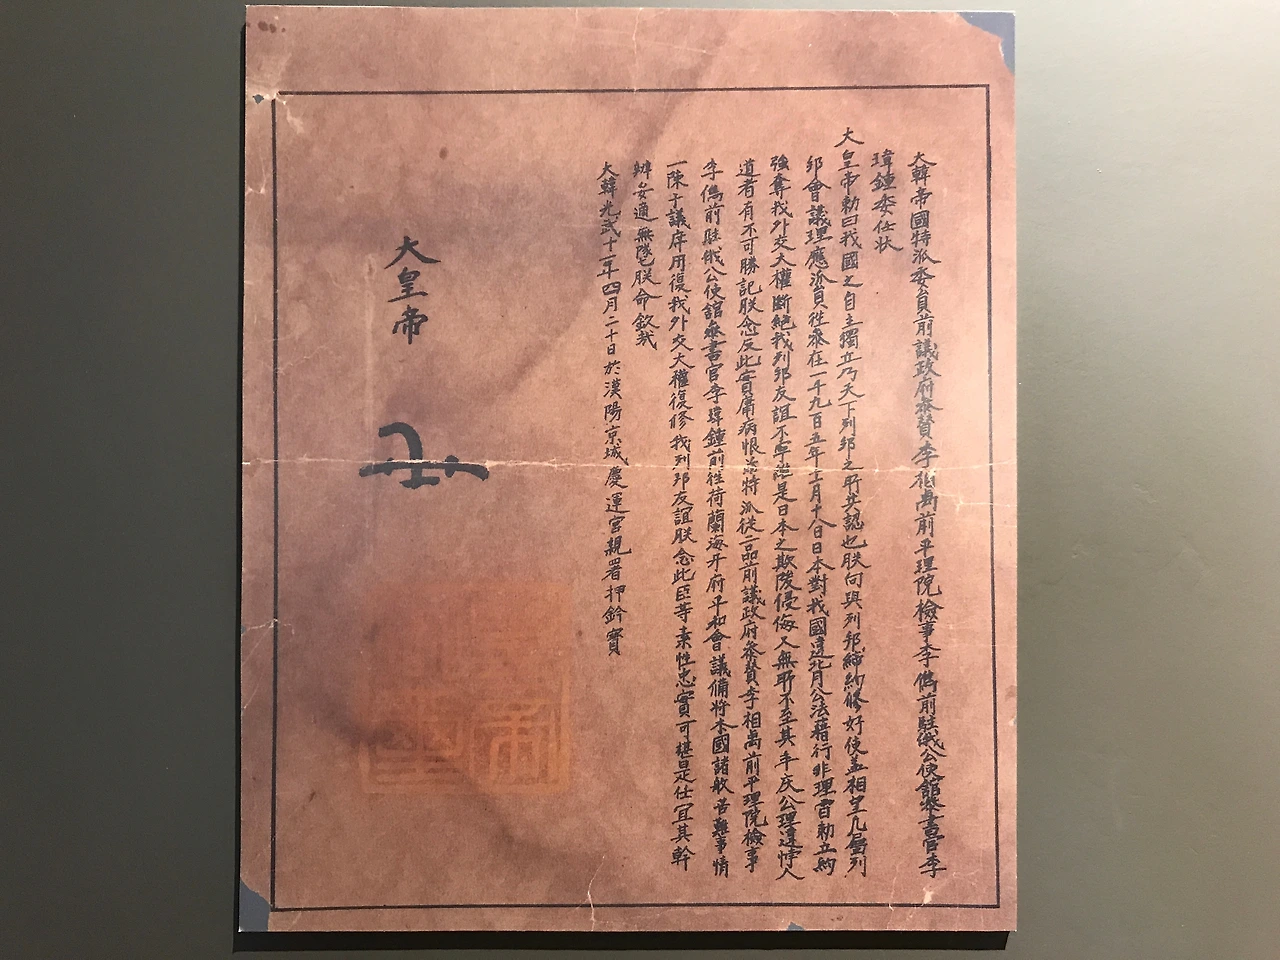 大韓帝國特派委員前議政府叅贊李相卨前平理院檢事李儁前駐俄公使館叅書官李
瑋鍾委任狀
大皇帝勅曰我國之自主獨立乃天下列邦之所共認也朕向與列邦締約修好使盖相望凡屬列
邦會議理應派員徃叅在一千九百五年十一月十八日日本對我國違背公法藉行非理脅勒立約
強奪我外交大權斷絕我列邦友誼不寧惟是日本之欺陵侵侮又無所不至其乖戾公理違悖人
道者有不可勝記朕念及此實庸病恨茲特派從二品前議政府叅贊李相卨前平理院檢事
李儁前駐俄公使舘叅書官李瑋鍾前徃荷蘭海牙府平和會議備將本國諸般苦難事情
一陳于議席用復我外交大權復修我列邦友誼朕念此臣等素性忠實可堪是任宜其幹
辨妥適無隳朕命欽哉
大韓光武十一年四月二十日於漢陽京城慶運宮親署押鈐寶
大皇帝